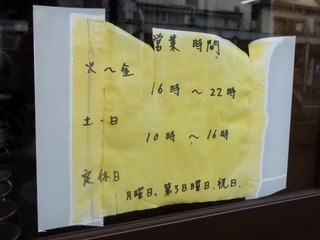 営業時間
火〜金
16時〜22時
土・日
10時〜16時
定休日
月曜日、第3日曜日、祝日、